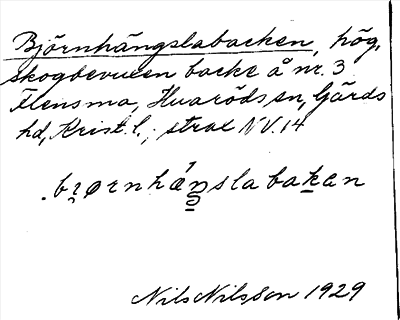 Björnhängslabacken, hög,
skogbevuxen backe å nr. 3
Flensma, Huaröds sn, Gärds
hd, Krist. l.; strax NV. 14
.bjørnhæŋslabakan
Nils Nilsson 1929